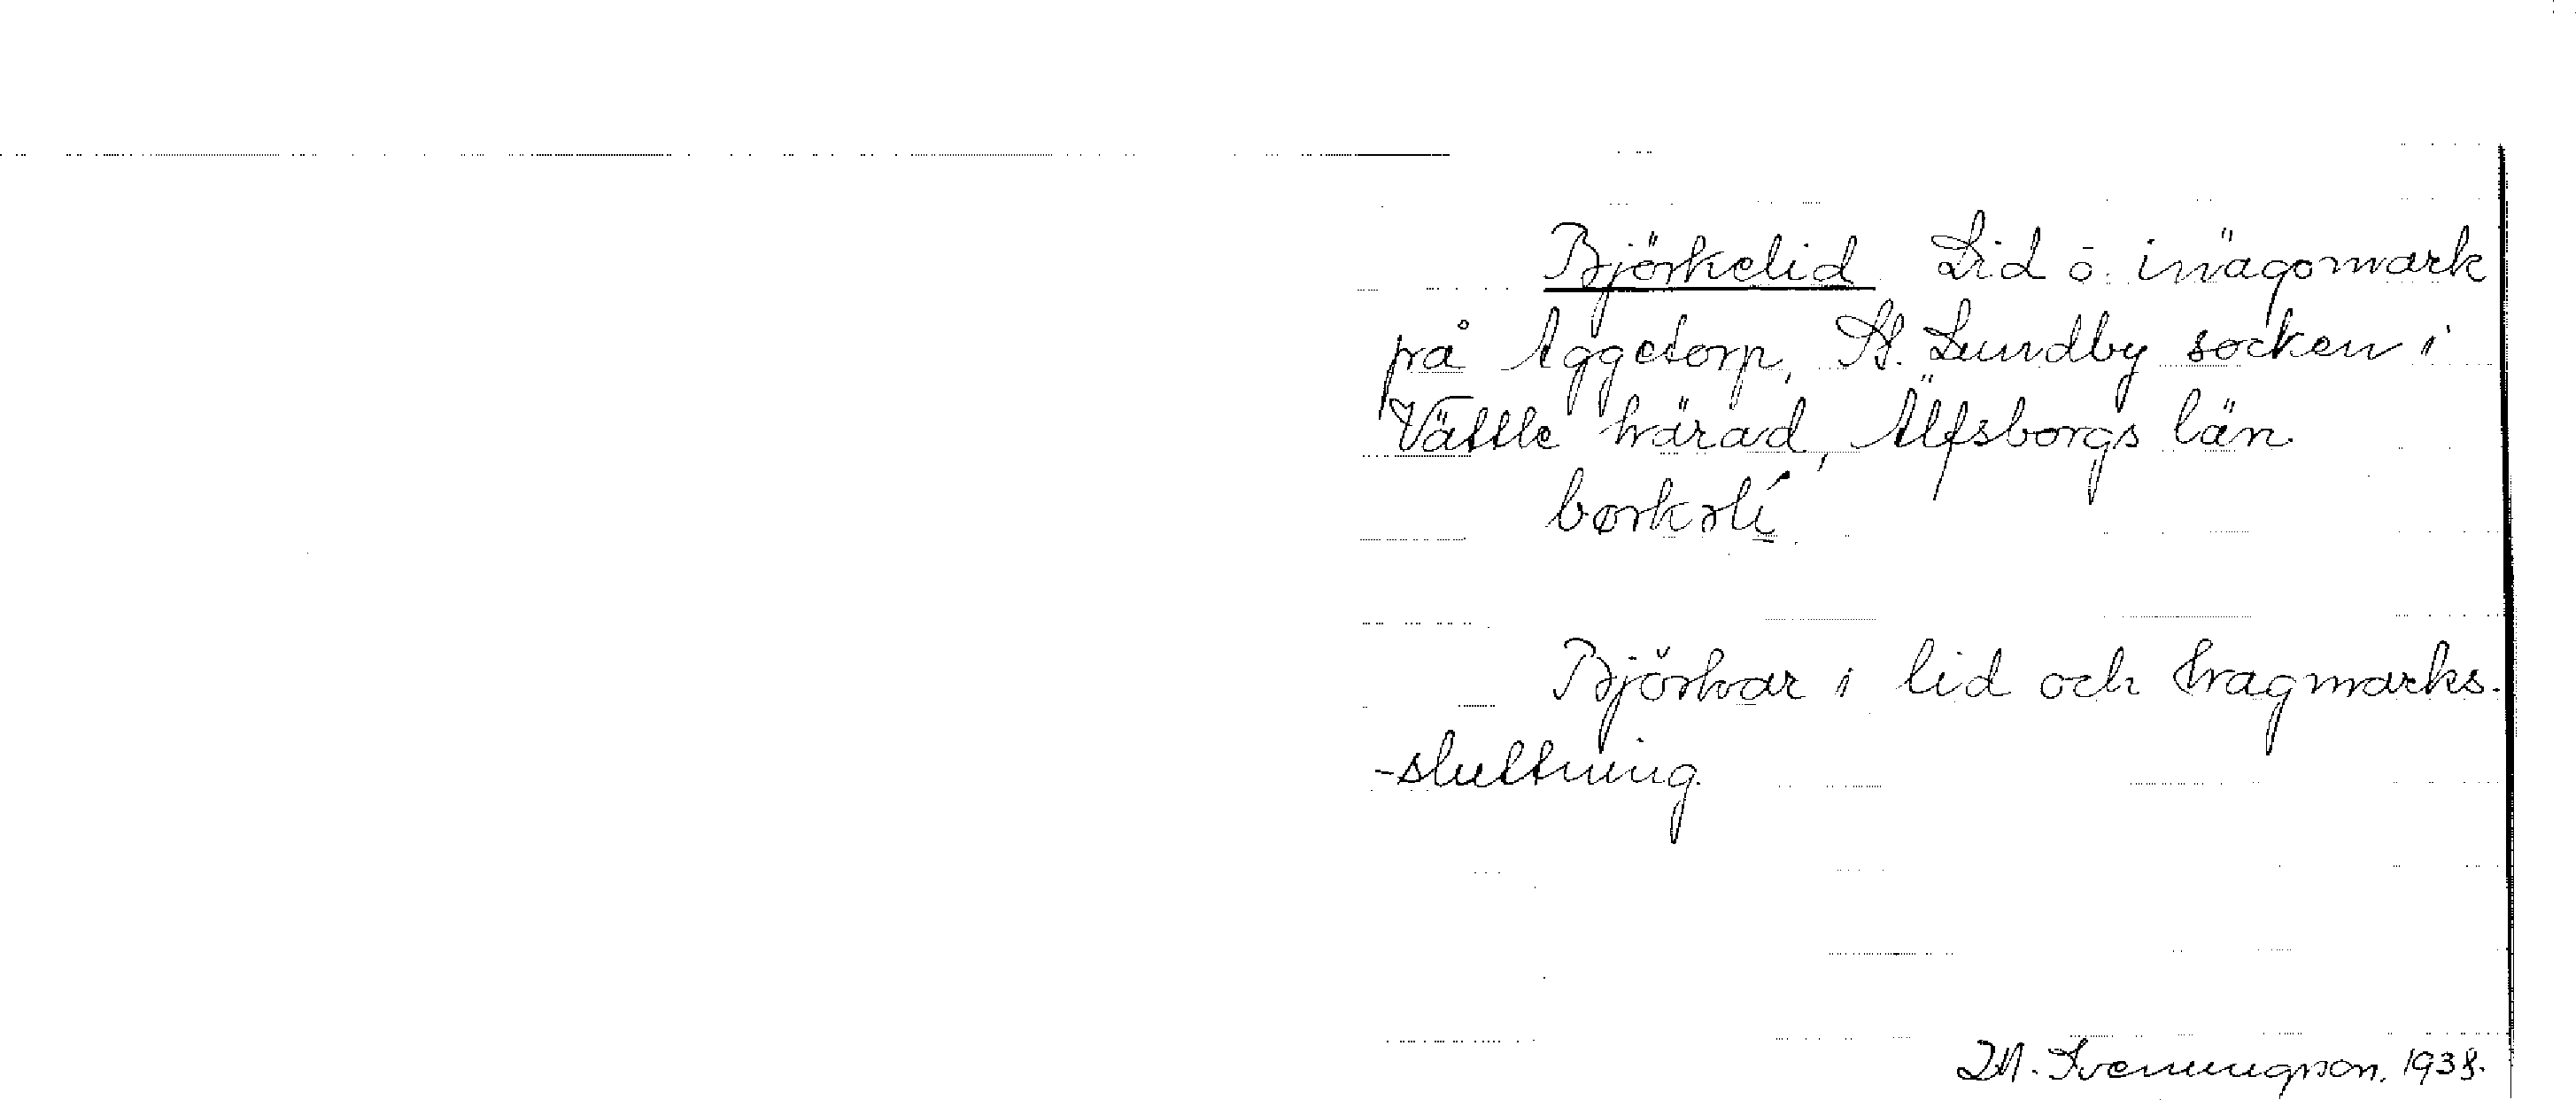 Björkelid Lid o. inägomark
på Aggetorp, St. Lundby socken i
Vättle härad, Älfsborgs län
børkəlí
Björkar i lid och hagmarks-
-sluttning.
Svenningson, 1938.